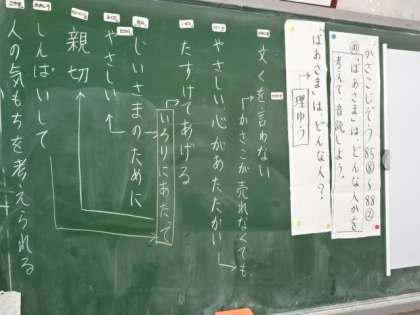 かさこじぞう 85⑧～88②
め「ばあさま」は、どんな人かを
考えて、音読しよう。
「ばあさま」は、どんな人？
理ゆう
文くを言わない
かさこが売れなくても
やさしい心があたたかい
たすけてあげる
いろりにあたって
じいさまのために
やさしい
親切
しんぱいして
人の気もちを考えられる